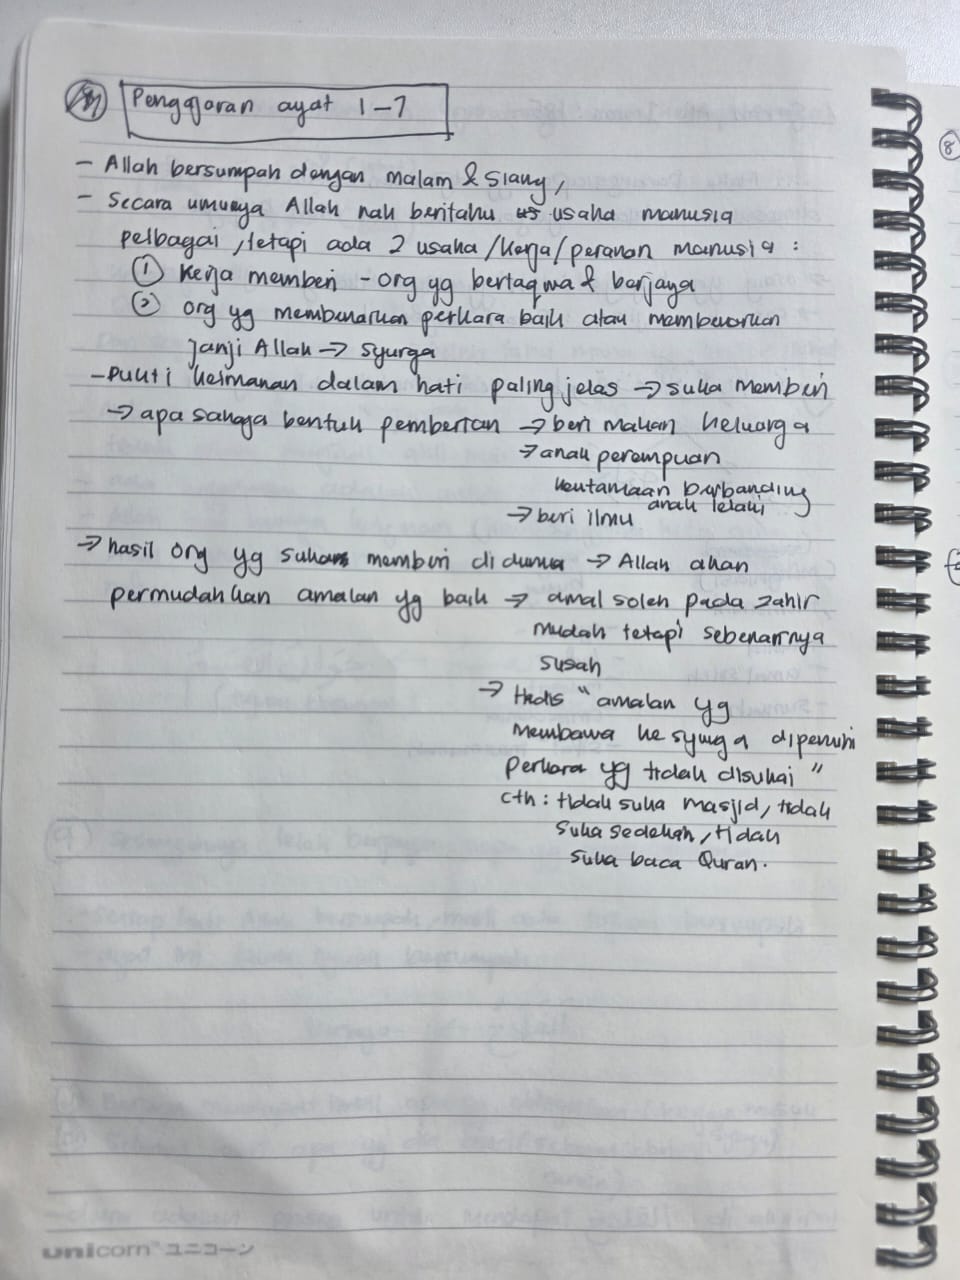 Pengajaran ayat 1-7
- Allah bersumpah dengan malam & siang,
- Secara umunya Allah nak beritahu usaha manusia
pelbagai, tetapi ada 2 usaha/kerja/peranan manusia:
① Kerja memberi - org yg bertaqwa & berjaya
② org yg membenarkan perkara baik atau membenarkan
janji Allah → syurga
- Bukti keimanan dalam hati paling jelas → suka memberi
→ apa sahaja bentuk pemberian → beri makan keluarga
→ anak perempuan
keutamaan berbanding
anak lelaki
→ beri ilmu
→ hasil org yg suka memberi di dunia → Allah akan
permudahkan amalan yg baik → amal soleh pada zahir
mudah tetapi sebenarnya
susah
→ Hadis "amalan yg
membawa ke syurga dipenuhi
perkara yg tidak disukai"
cth: tidak suka masjid, tidak
suka sedekah, tidak
suka baca Quran.
8
unicorn™ ユニコーン